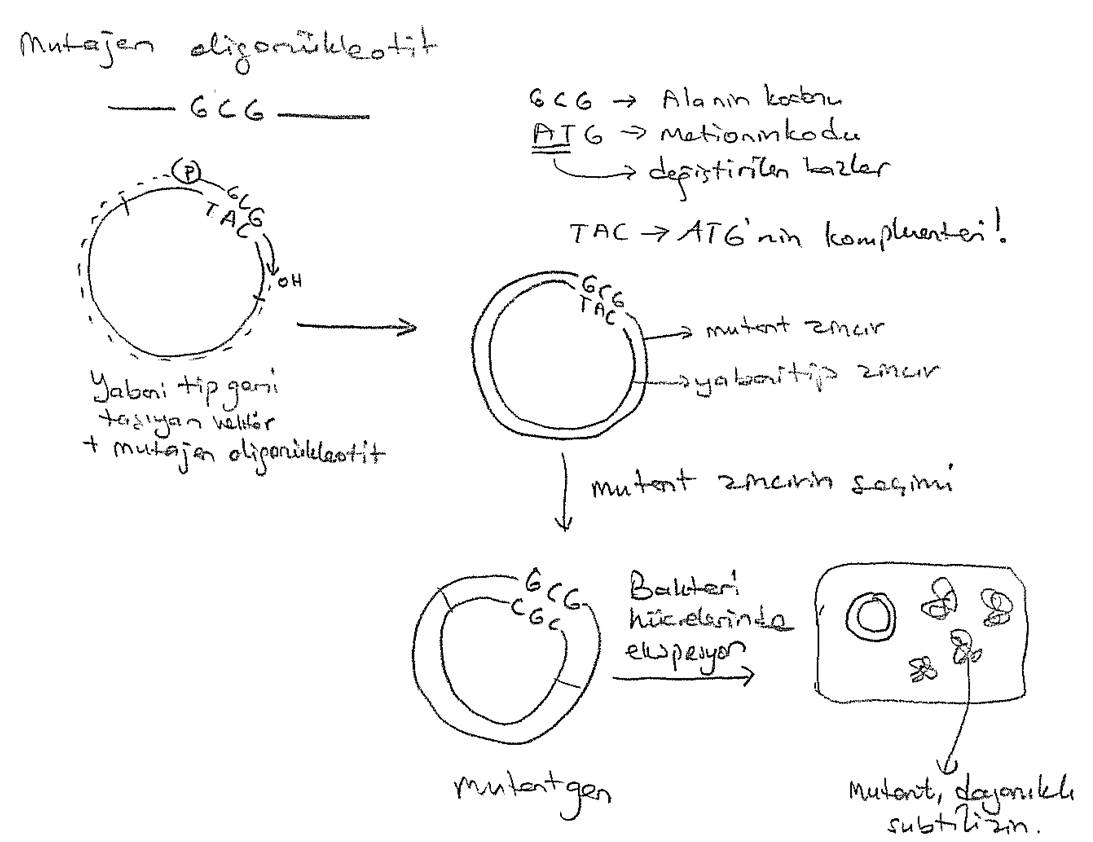 Mutajen oligonükleotit
GCG
GCG → Alanin kodonu
ATG → Metionin kodu
değiştirilen bazlar
TAC → ATG'nin komplementeri!
P
GCG
TAC
OH
Yabani tip geni
taşıyan vektör
+ mutajen oligonükleotit
GCG
TAC
mutant zincir
yabani tip zincir
mutant zincirin seçimi
GCG
CGC
mutant gen
Bakteri
hücrelerinde
ekspresyon
Mutant, dayanıklı
subtilizin.